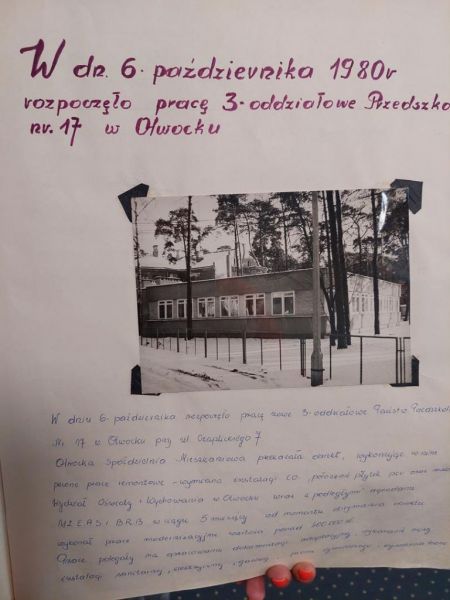 W dn. 6. października 1980r
rozpoczęło pracę 3-oddziałowe Przedszko
nr. 17 w Otwocku
W dniu 6-października rozpoczęło pracę nowe 3-oddziałowe
Nr. 17 w Otwocku przy ul. 7
Otwocka Spółdzielnia Mieszkaniowa przekazała obiekt, wykonując w nim
pewne prace remontowe - wymiana instalacji co,
Wydział Oświaty i Wychowania w Otwocku wraz z podległymi
M.Z.E.A.S i B.R.B w ciągu 5 miesięcy od momentu otrzymania
wykonał prace modernizacyjne wartości ponad 500.000 zł.
Prace polegały na opracowaniu dokumentacji
instalacji sanitarnej, elektrycznej, gazowej